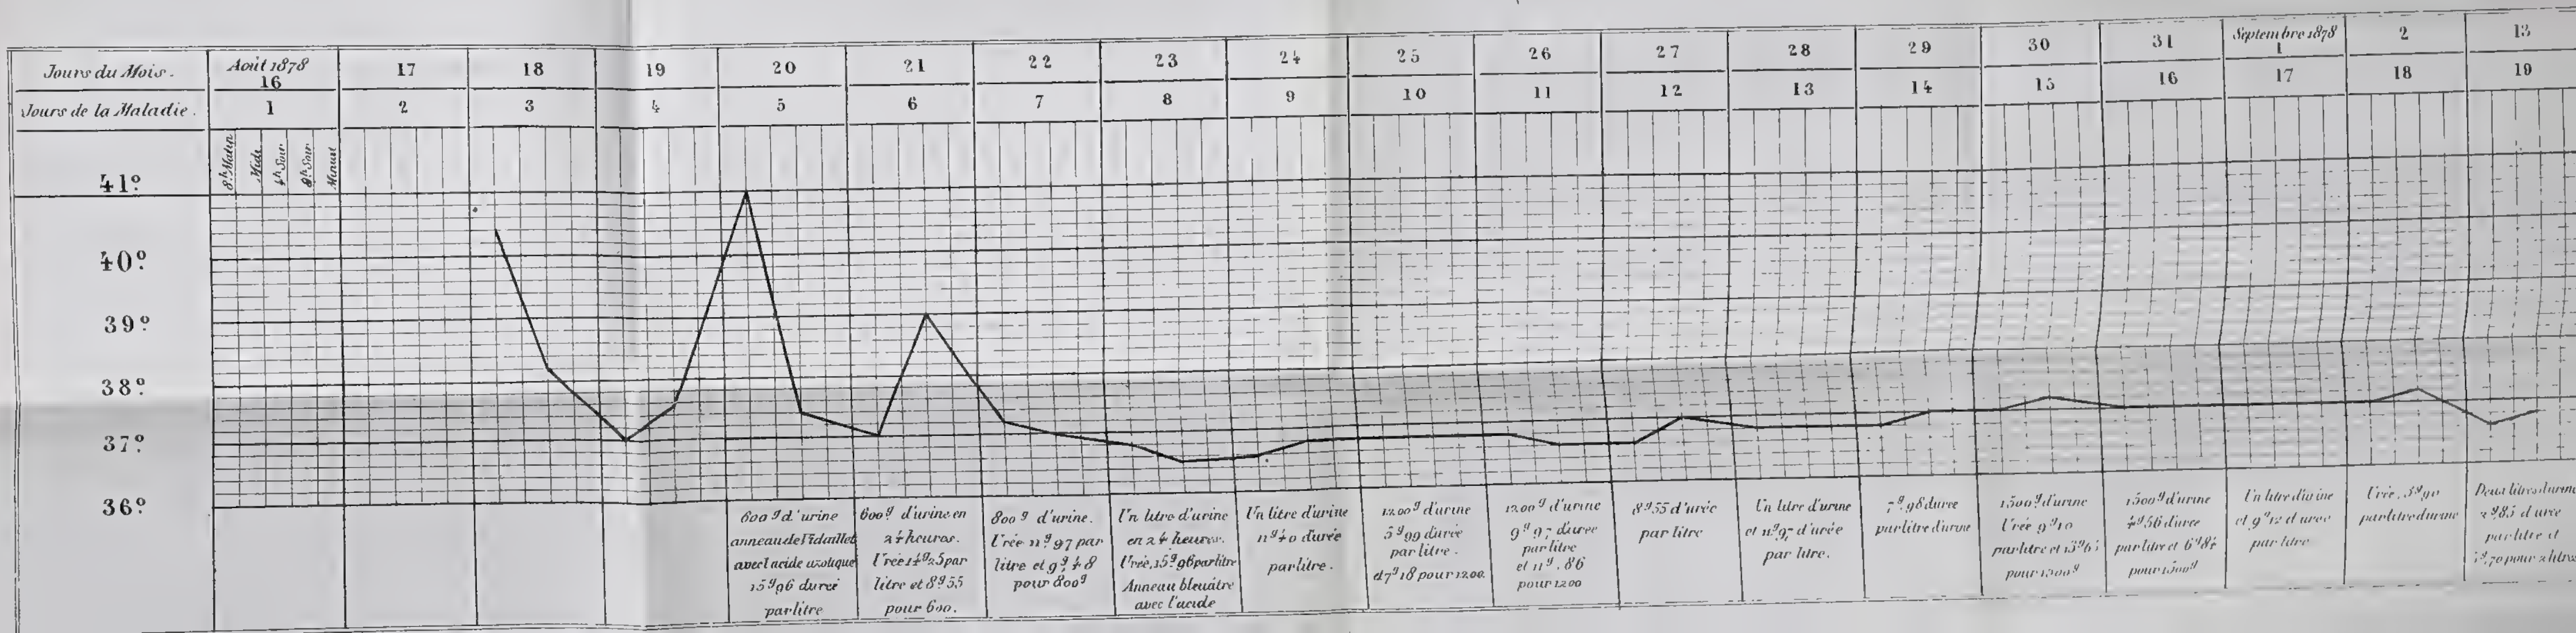 Jours du Mois.
Août 1878
16
17
18
19
20
21
22
23
24
25
26
27
28
29
30
31
Septembre 1878
1
2
13
Jours de la Maladie.
1
2
3
4
5
6
7
8
9
10
11
12
13
14
15
16
17
18
19
8h Matin
Midi
4h Soir
8h Soir
Minuit
41º
40º
39º
38º
37º
36º
600g d'urine
anneau de
avec l'acide azotique
15g 96 d'urée
par litre
600g d'urine en
24 heures.
Urée 14g 25 par
litre et 8g 55
pour 600.
800g d'urine.
Urée 11g 97 par
litre et 9g 48
pour 800g
Un litre d'urine
en 24 heures.
Urée, 15g 96 par litre
Anneau bleuâtre
avec l'acide
Un litre d'urine
11g 40 d'urée
par litre.
1200g d'urine
5g 99 d'urée
par litre.
et 7g 18 pour 1200
1200g d'urine
9g 97 d'urée
par litre
et 11g.86
pour 1200
8g 55 d'urée
par litre
Un litre d'urine
et 11g 97 d'urée
par litre.
7g 98 d'urée
par litre d'urine
1500g d'urine
Urée 9g 10
par litre et
pour 1500g
1500g d'urine
4g 56 d'urée
par litre et 6g 84
pour 1500g
Un litre d'urine
et 9g 12 d'urée
par litre
Urée,
par litre d'urine
Deux litres d'urine
2g 85 d'urée
par litre et
5g 70 pour 2 litres